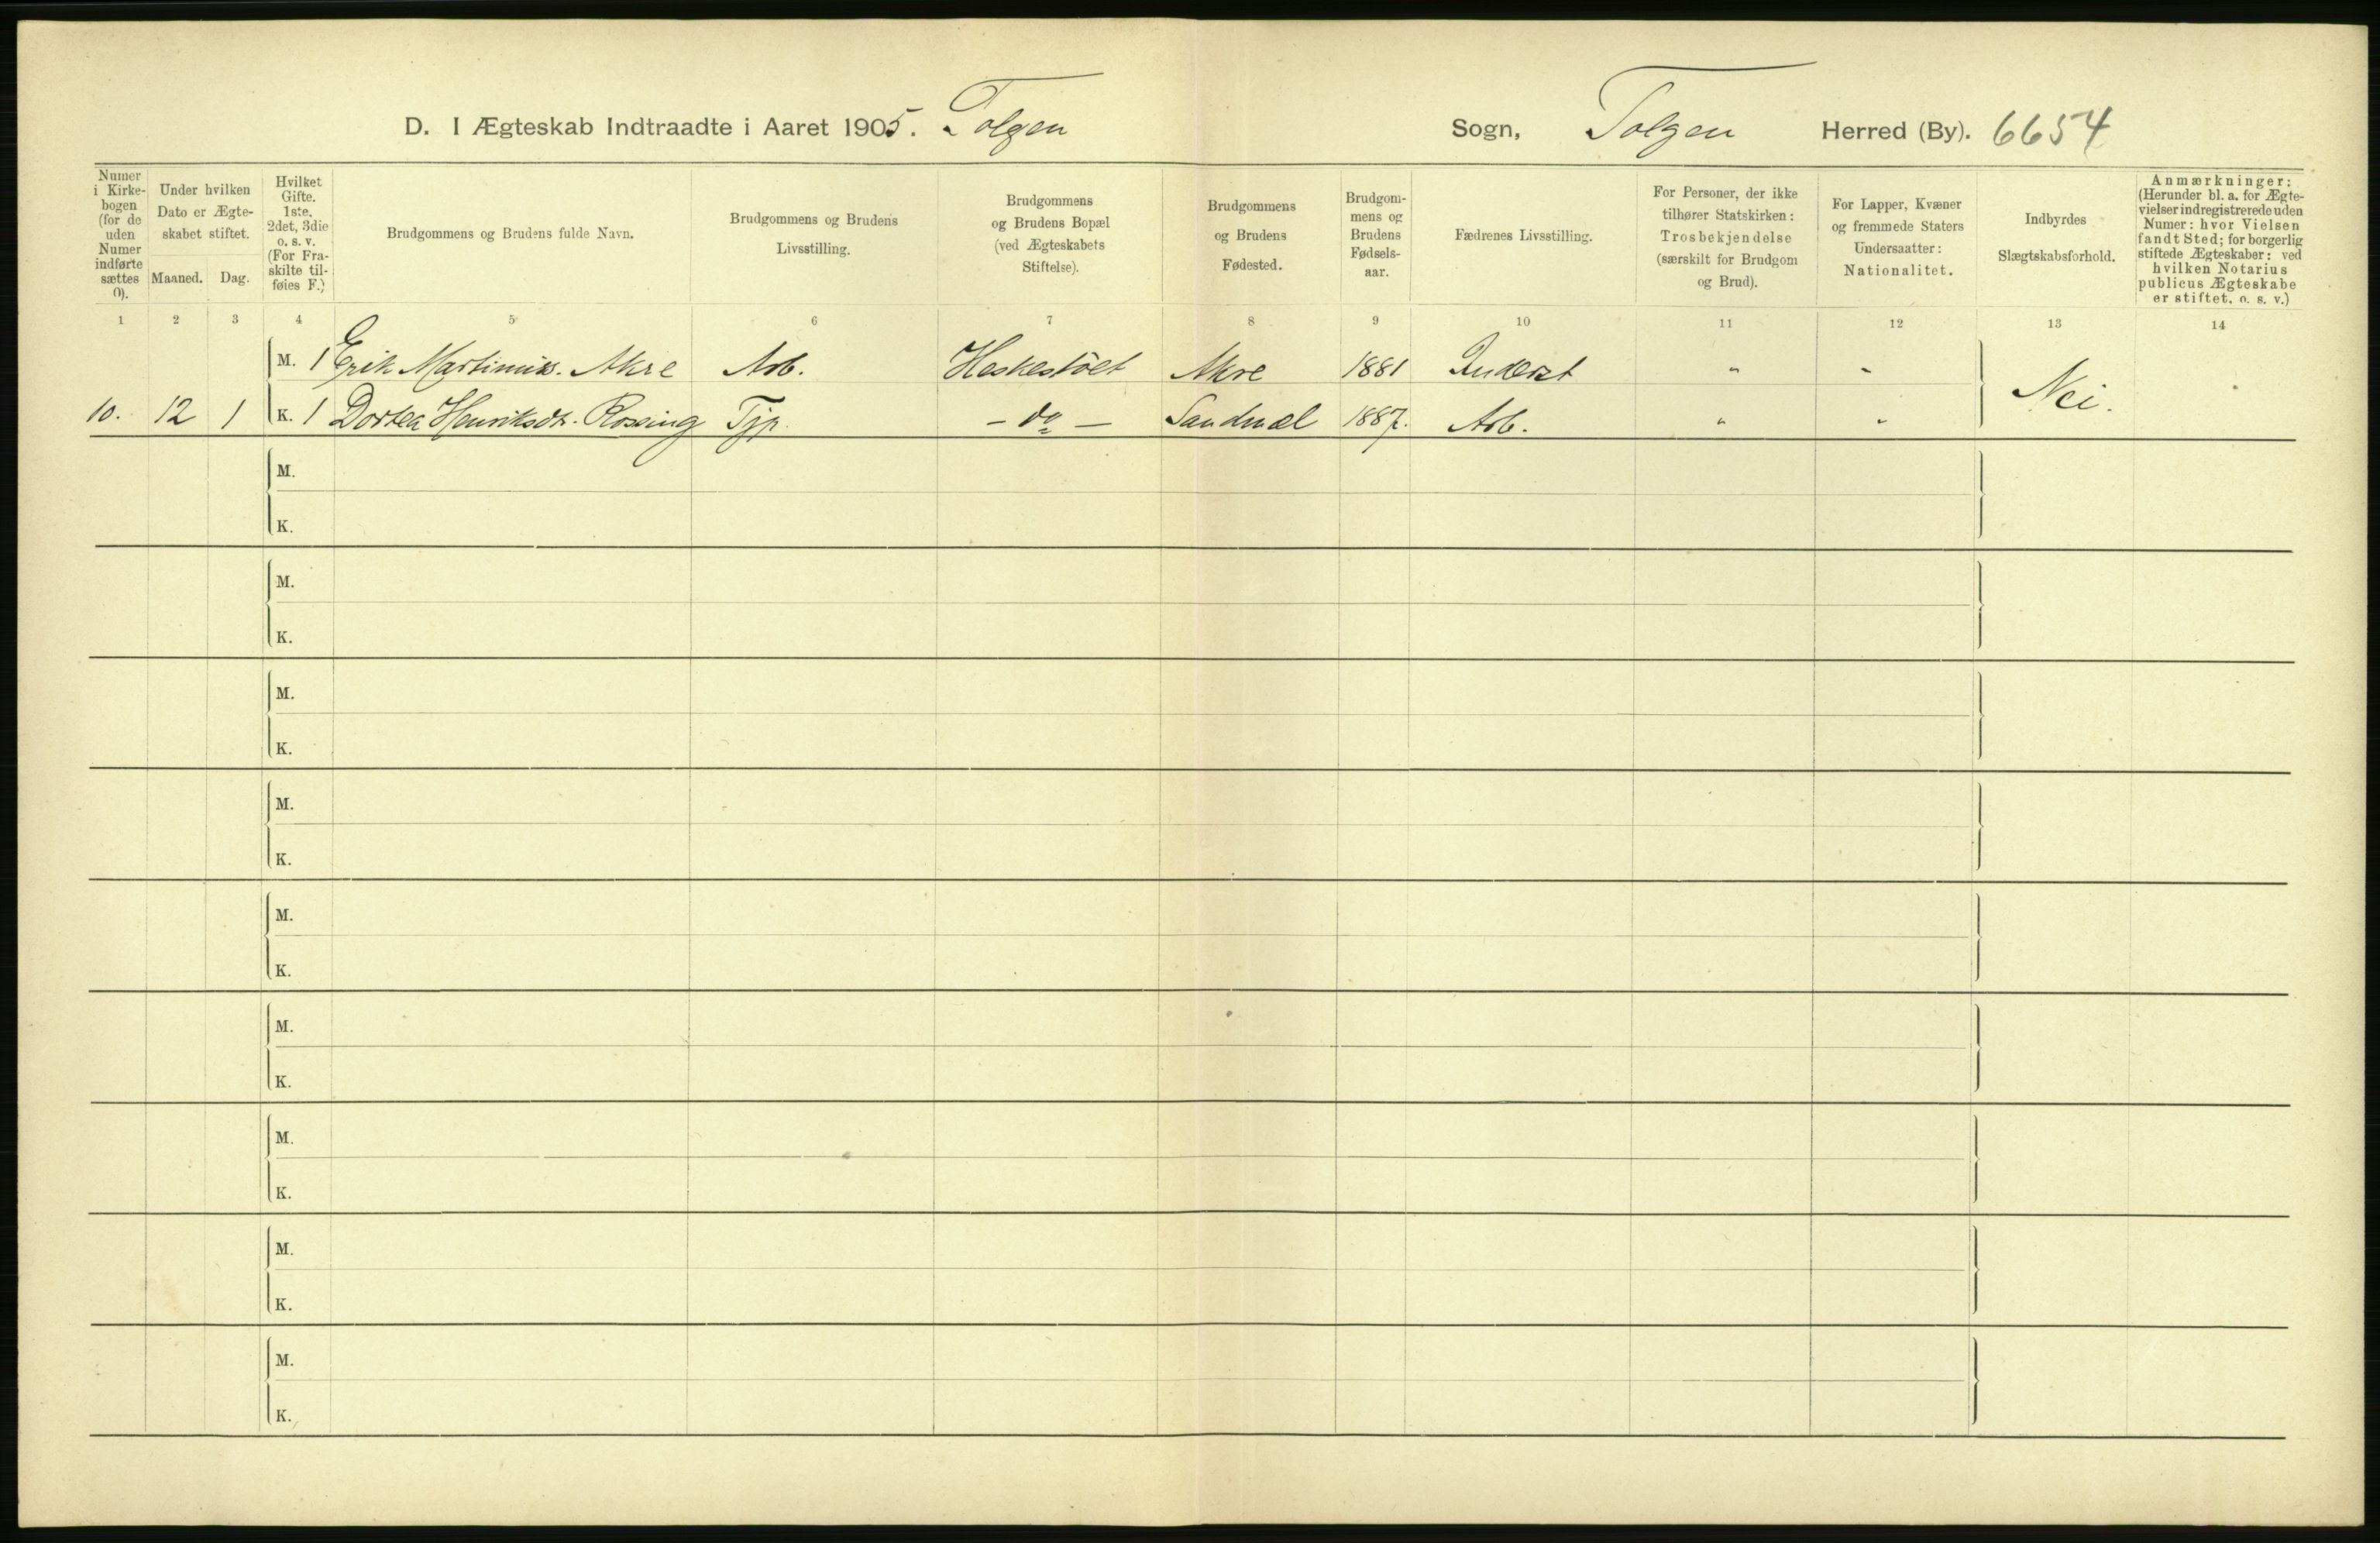 D. I Ægteskab Indtraadte i Aaret 1905. Tolgen Sogn, Tolgen Herred (By). 6654
Numer i Kirke-bogen (for de uden Numer indførte sættes 0).
Under hvilken Dato er Ægte-skabet stiftet.
Maaned. Dag.
Hvilket Gifte. 1ste, 2det, 3die o. s. v. (For Fra-skilte til-føies F.)
Brudgommens og Brudens fulde Navn.
Brudgommens og Brudens Livsstilling.
Brudgommens og Brudens Bopæl (ved Ægteskabets Stiftelse).
Brudgommens og Brudens Fødested.
Brudgom-mens og Brudens Fødsels-aar.
Fædrenes Livsstilling.
For Personer, der ikke tilhører Statskirken: Trosbekjendelse (særskilt for Brudgom og Brud).
For Lapper, Kvæner og fremmede Staters Undersaatter: Nationalitet.
Indbyrdes Slægtskabsforhold.
Anmærkninger: (Herunder bl. a. for Ægte-vielser indregistrerede uden Numer: hvor Vielsen fandt Sted; for borgerlig stiftede Ægteskaber: ved hvilken Notarius publicus Ægteskabe er stiftet. o. s. v.)
1 2 3 4 5 6 7 8 9 10 11 12 13 14
M. 1 Erik Martinius. Akre Arb. Akre 1881 Inderst " "
Nei.
10. 12 1 K. 1 Dortea Henriksdt. Røssing Tjp. - do - Sandmæl 1887. Arb. " "
M.
K.
M.
K.
M.
K.
M.
K.
M.
K.
M.
K.
M.
K.
M.
K.
M.
K.